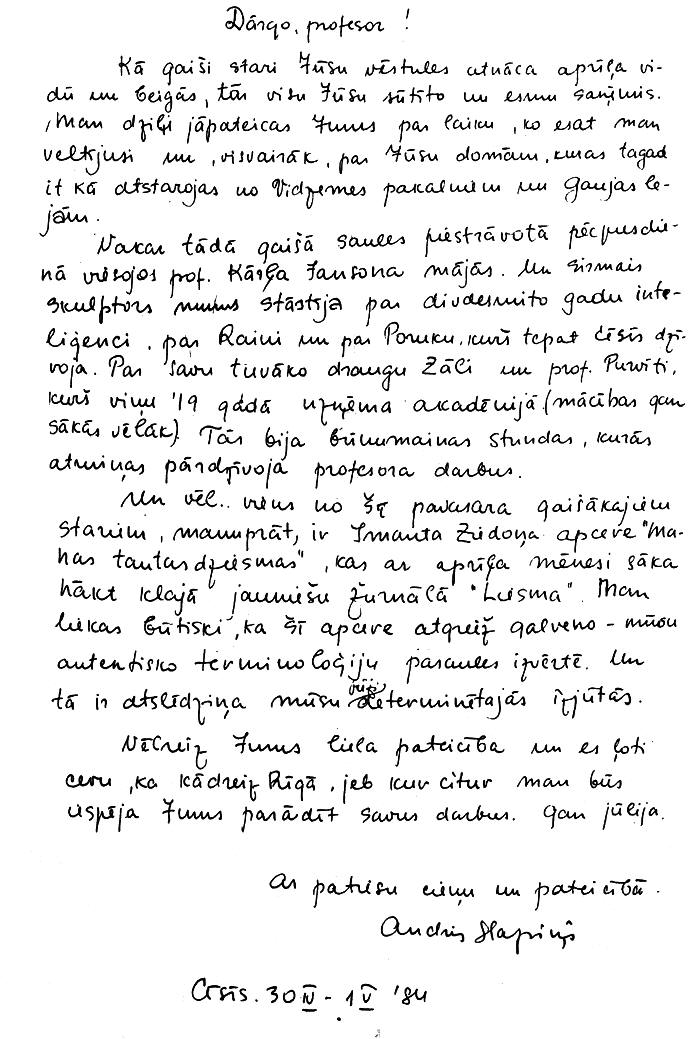 Dārgo, profesor!
Kā gaiši stari Jūsu vēstules atnāca aprīļa vi-
dū un beigās, tās visu Jūsu sūtīto un esmu saņēmis.
Man dziļi jāpateicas Jums par laiku, ko esat man
veltījusi un, visvairāk, par Jūsu domām, kuras tagad
it kā atstarojas no Vidzemes pakalniem un Gaujas le-
jām.
Vakar tādā gaišā saules piestrāvotā pēcpusdie-
nā viesojos prof. Kārļa Jansona mājās. Un sirmais
skulptors mums stāstīja par divdesmito gadu inte-
liģenci, par Raini un par Poruku, kurš tepat Cēsīs dzī-
voja. Par savu tuvāko draugu Zāli un prof. Purvīti,
kurš viņu '19 gadā uzņēma akadēmijā (mācības gan
sākās vēlāk). Tās bija būnumainas stundas, kurās
atmiņas pārdzīvoja profesora darbus.
Un vēl.. viens no šī pavasara gaišākajiem
stariem, manuprāt, ir Imanta Ziedoņa apcere "Ma-
nas tautasdziesmas", kas ar aprīļa mēnesi sāka
nākt klajā jauniešu žurnālā "Liesma". Man
liekas būtiski, ka šī apcere atgriež galveno - mūsu
autentisko terminoloģiju pasaules izvērtē. Un
tā ir atslēdziņa mūsu determinētajās izjūtās.
Vēlreiz Jums liela pateicība un es ļoti
ceru, ka kādreiz Rīgā, jeb kur citur man būs
iespēja Jums parādīt savus darbus. Gan jūlijā.
Ar patiesu cieņu un pateicībā.
Andris Slapiņš
Cēsīs. 30 IV - 1 V '84